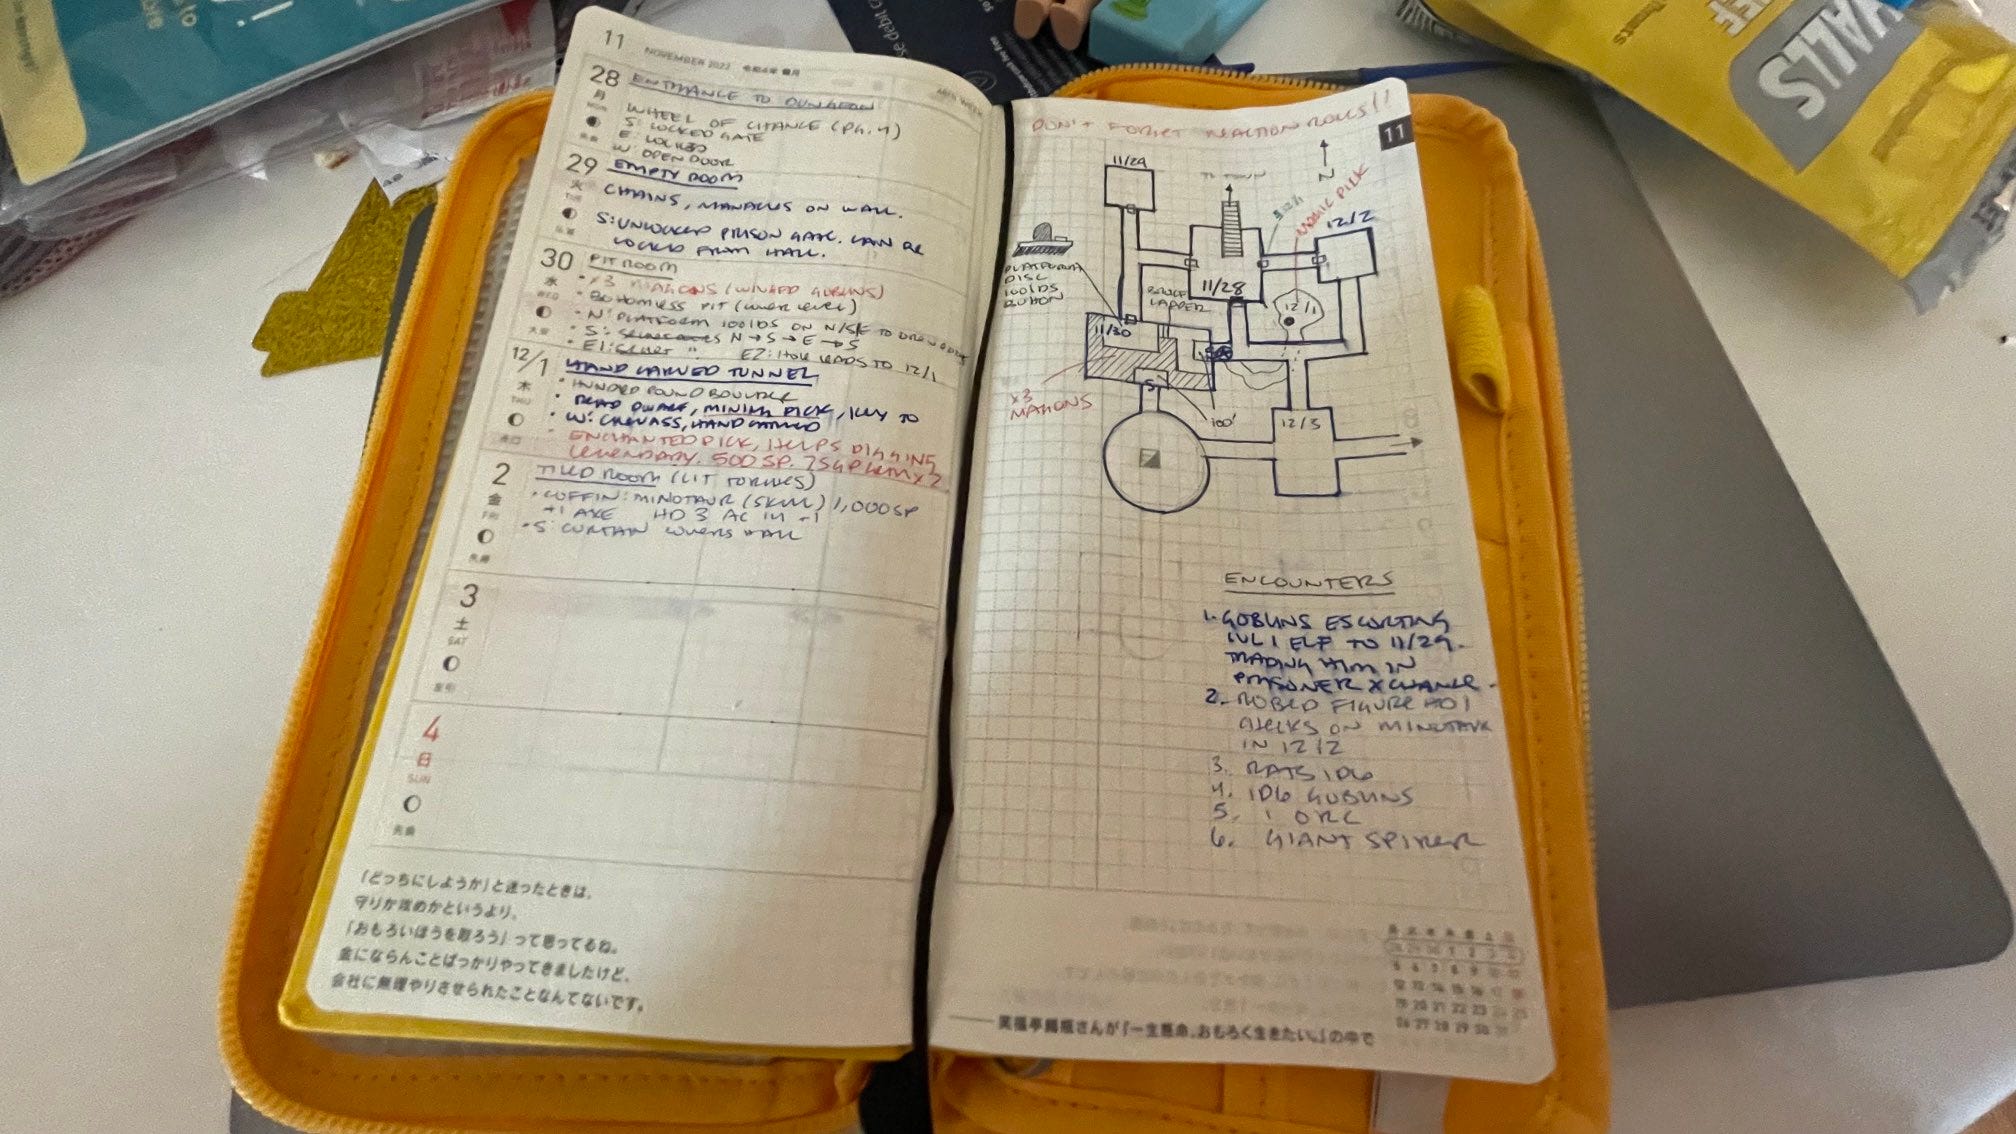 11 NOVEMBER 2022 令和4年 霜月
28 ENTRANCE TO DUNGEON
月
MON
WHEEL OF CHANCE (PG. 4)
S: LOCKED GATE
E: LOCKED
W: OPEN DOOR
29 EMPTY ROOM
火
TUE
CHAINS, MANACLES ON WALL.
S: UNLOCKED PRISON GATE. CAN BE
LOCKED FROM HALL.
30 PIT ROOM
水
WED
• x3 (WINGED GOBLINS)
• BOTTOMLESS PIT (lower level)
• N: PLATFORM 100 LBS ON N/S/E TO
• S: N → S → E → S
• E1: SECRET " E2: HOLE LEADS TO 12/1
12/1 HAND CARVED TUNNEL
木
THU
• HUNDRED POUND BOULDER
• DEAD DWARF, MINING PICK, KEY TO
• W: CREVASS, HAND CARVED
• ENCHANTED PICK, HELPS DIGGING
LEGENDARY. 500 SP. 75GP GEM x 2
2 TILED ROOM (LIT TORCHES)
金
FRI
• COFFIN: MINOTAUR (SKEL) 1,000SP
+1 AXE HD 3 AC 14 +1
• S: CURTAIN COVERS HALL
3
土
SAT
4
日
SUN
先負
「どっちにしようか」と迷ったときは、
守りか攻めかというより、
「おもろいほうを取ろう」って思ってるね。
金にならんことばっかりやってきましたけど、
会社に無理やりさせられたことなんてないです。
DON'T FORGET REACTION ROLLS!!
11
N
11/29
TO TOWN
MAGIC PICK
12/2
PLATFORM
DISC
100 LBS
BUTTON
11/28
12/1
11/30
S
x3
100'
12/3
ENCOUNTERS
1. GOBLINS ESCORTING
LVL 1 ELF TO 11/29.
TRADING HIM IN
PRISONER XCHANGE.
2. ROBED FIGURE HD 1
CHECKS ON MINOTAUR
IN 12/2
3. RATS 1D6
4. 1D6 GOBLINS
5. 1 ORC
6. GIANT SPIDER
笑福亭鶴瓶さんが「一生懸命、おもろく生きたい。」の中で
WALLS